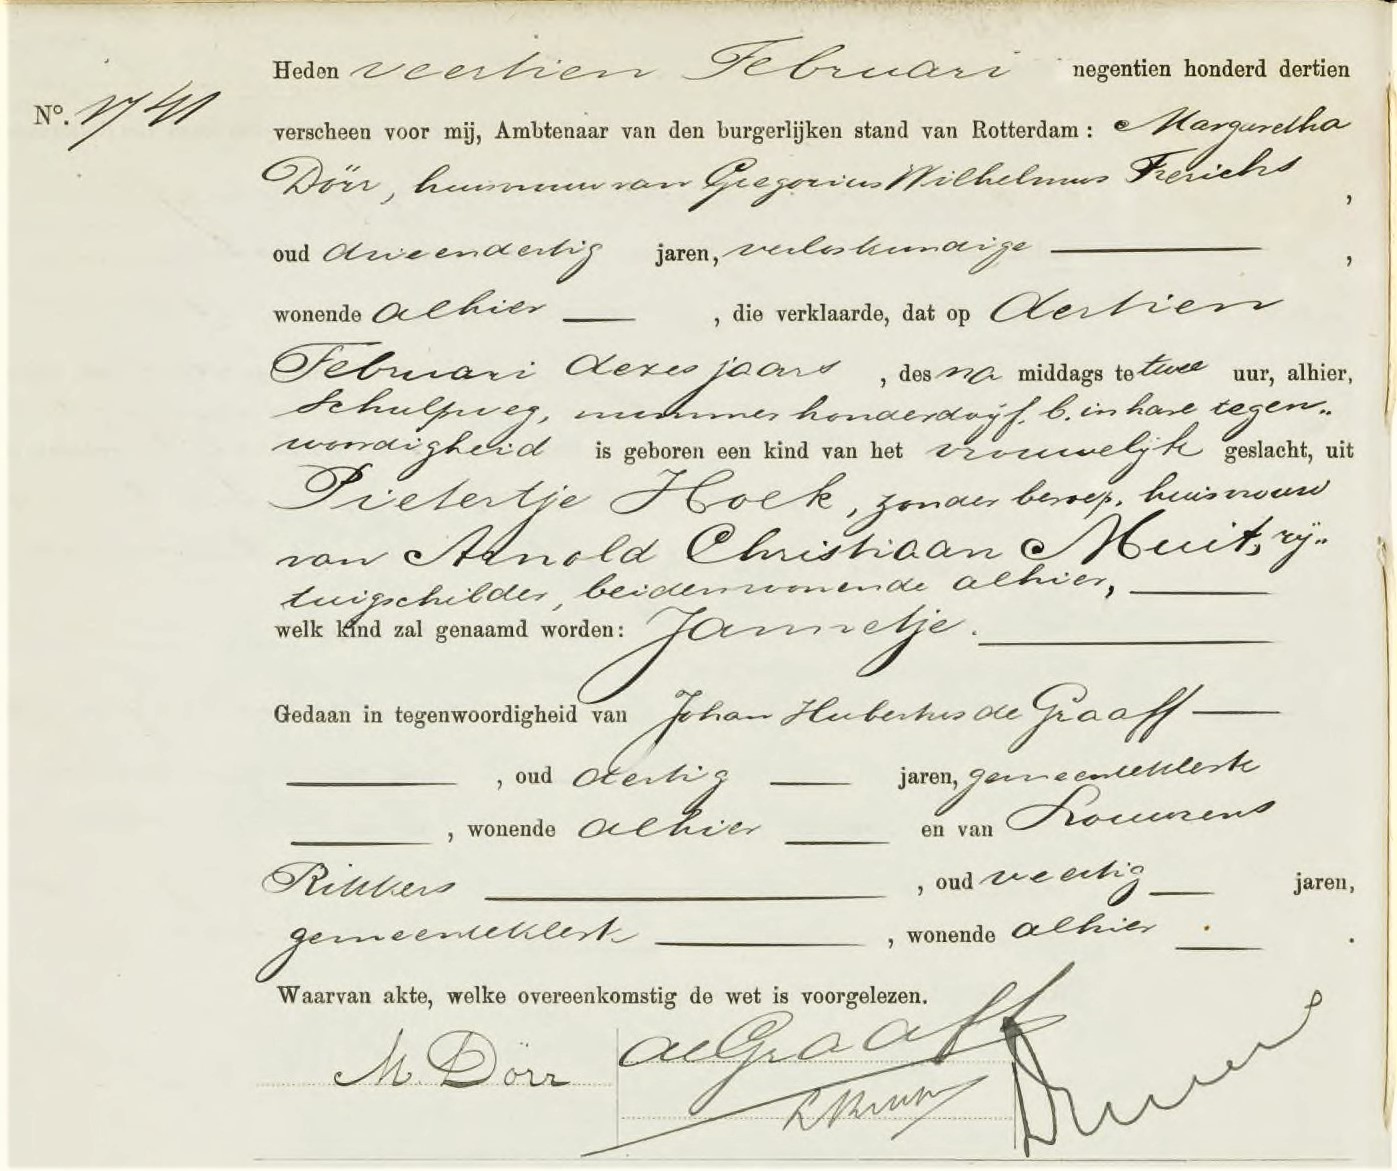 Heden veertien Februari negentien honderd dertien
No. 1741
verscheen voor mij, Ambtenaar van den burgerlijken stand van Rotterdam: Margaretha
Dörr, huisvrouw van Gregorius Wilhelmus Frerichs,
oud drieendertig jaren, verloskundige,
wonende alhier, die verklaarde, dat op dertien
Februari dezes jaars, des na middags te twee uur, alhier,
Schulpweg, nummer honderdvijf. b. in hare tegen„
woordigheid is geboren een kind van het vrouwelijk geslacht, uit
Pietertje Hoek, zonder beroep, huisvrouw
van Arnold Christiaan Muit, rij„
tuigschilder, beiden wonende alhier,
welk kind zal genaamd worden: Jannetje.
Gedaan in tegenwoordigheid van Johan Hubertus de Graaff
, oud dertig jaren, gemeenteklerk
, wonende alhier en van Lourens
Rikkers, oud veertig jaren,
gemeenteklerk, wonende alhier.
Waarvan akte, welke overeenkomstig de wet is voorgelezen.
M. Dörr de Graaff